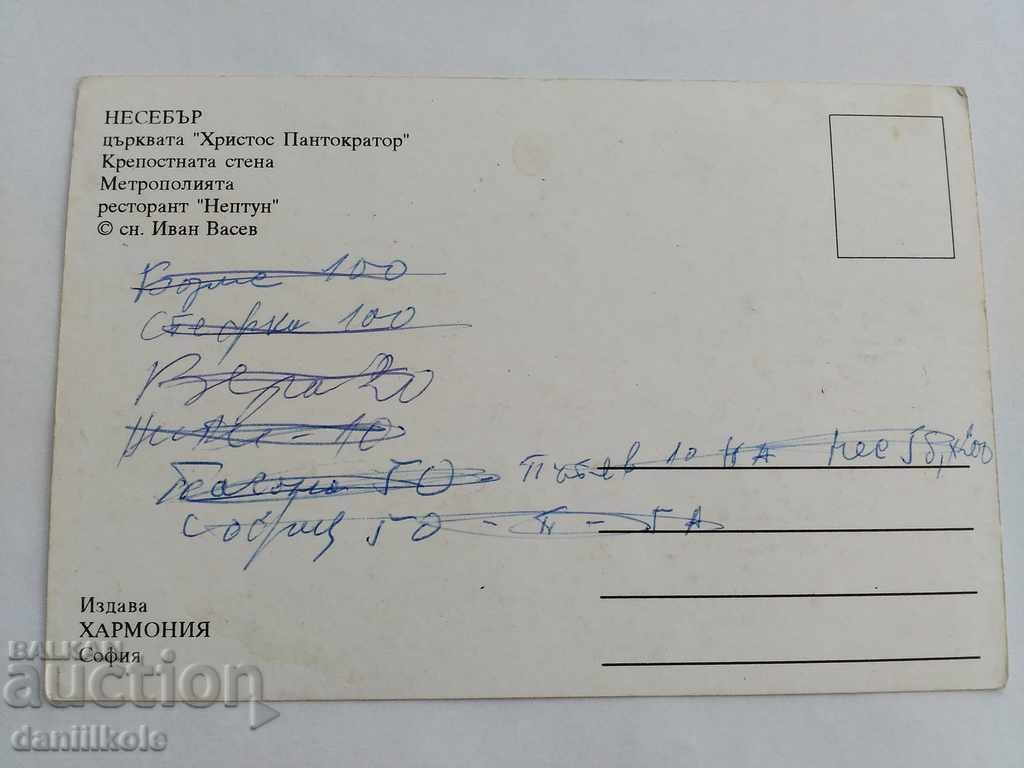 НЕСЕБЪР
църквата "Христос Пантократор"
Крепостната стена
Метрополията
ресторант "Нептун"
© сн. Иван Васев
100
Стефка 100
Вера 20
- 10
50
50 - П - 5А
10 НА Нес
Издава
ХАРМОНИЯ
София
BALKAN
auction
daniilkole